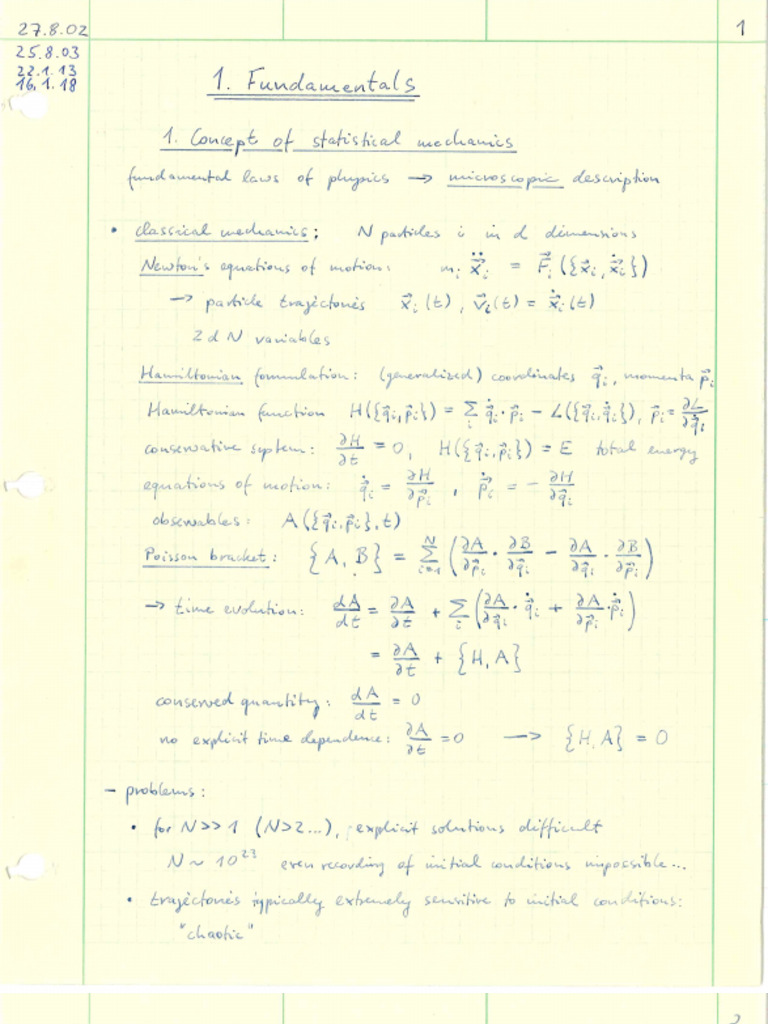 27.8.02
1
25.8.03
22.1.13
16.1.18
1. Fundamentals
1. Concept of statistical mechanics
fundamental laws of physics → microscopic description
• classical mechanics: N particles i in d dimensions
Newton's equations of motion: mᵢ ẍ⃗ᵢ = F⃗ᵢ ({x⃗ᵢ, ẋ⃗ᵢ})
→ particle trajectories x⃗ᵢ(t), v⃗ᵢ(t) = ẋ⃗ᵢ(t)
2 d N variables
Hamiltonian formulation: (generalized) coordinates q⃗ᵢ, momenta p⃗ᵢ
Hamiltonian function H({q⃗ᵢ,p⃗ᵢ}) = Σᵢ q̇⃗ᵢ · p⃗ᵢ − L({q⃗ᵢ,q̇⃗ᵢ}), p⃗ᵢ = ∂L/∂q̇⃗ᵢ
conservative system: ∂H/∂t = 0, H({q⃗ᵢ,p⃗ᵢ}) = E total energy
equations of motion: q̇⃗ᵢ = ∂H/∂p⃗ᵢ , ṗ⃗ᵢ = − ∂H/∂q⃗ᵢ
observables: A({q⃗ᵢ,p⃗ᵢ},t)
Poisson bracket: {A, B} = Σᵢ₌₁ᴺ (∂A/∂p⃗ᵢ · ∂B/∂q⃗ᵢ − ∂A/∂q⃗ᵢ · ∂B/∂p⃗ᵢ)
→ time evolution: dA/dt = ∂A/∂t + Σᵢ (∂A/∂q⃗ᵢ · q̇⃗ᵢ + ∂A/∂p⃗ᵢ · ṗ⃗ᵢ)
= ∂A/∂t + {H, A}
conserved quantity: dA/dt = 0
no explicit time dependence: ∂A/∂t = 0 → {H, A} = 0
– problems:
• for N>>1 (N>2...), explicit solutions difficult
N ~ 10²³ even recording of initial conditions impossible...
• trajectories typically extremely sensitive to initial conditions:
"chaotic"
2